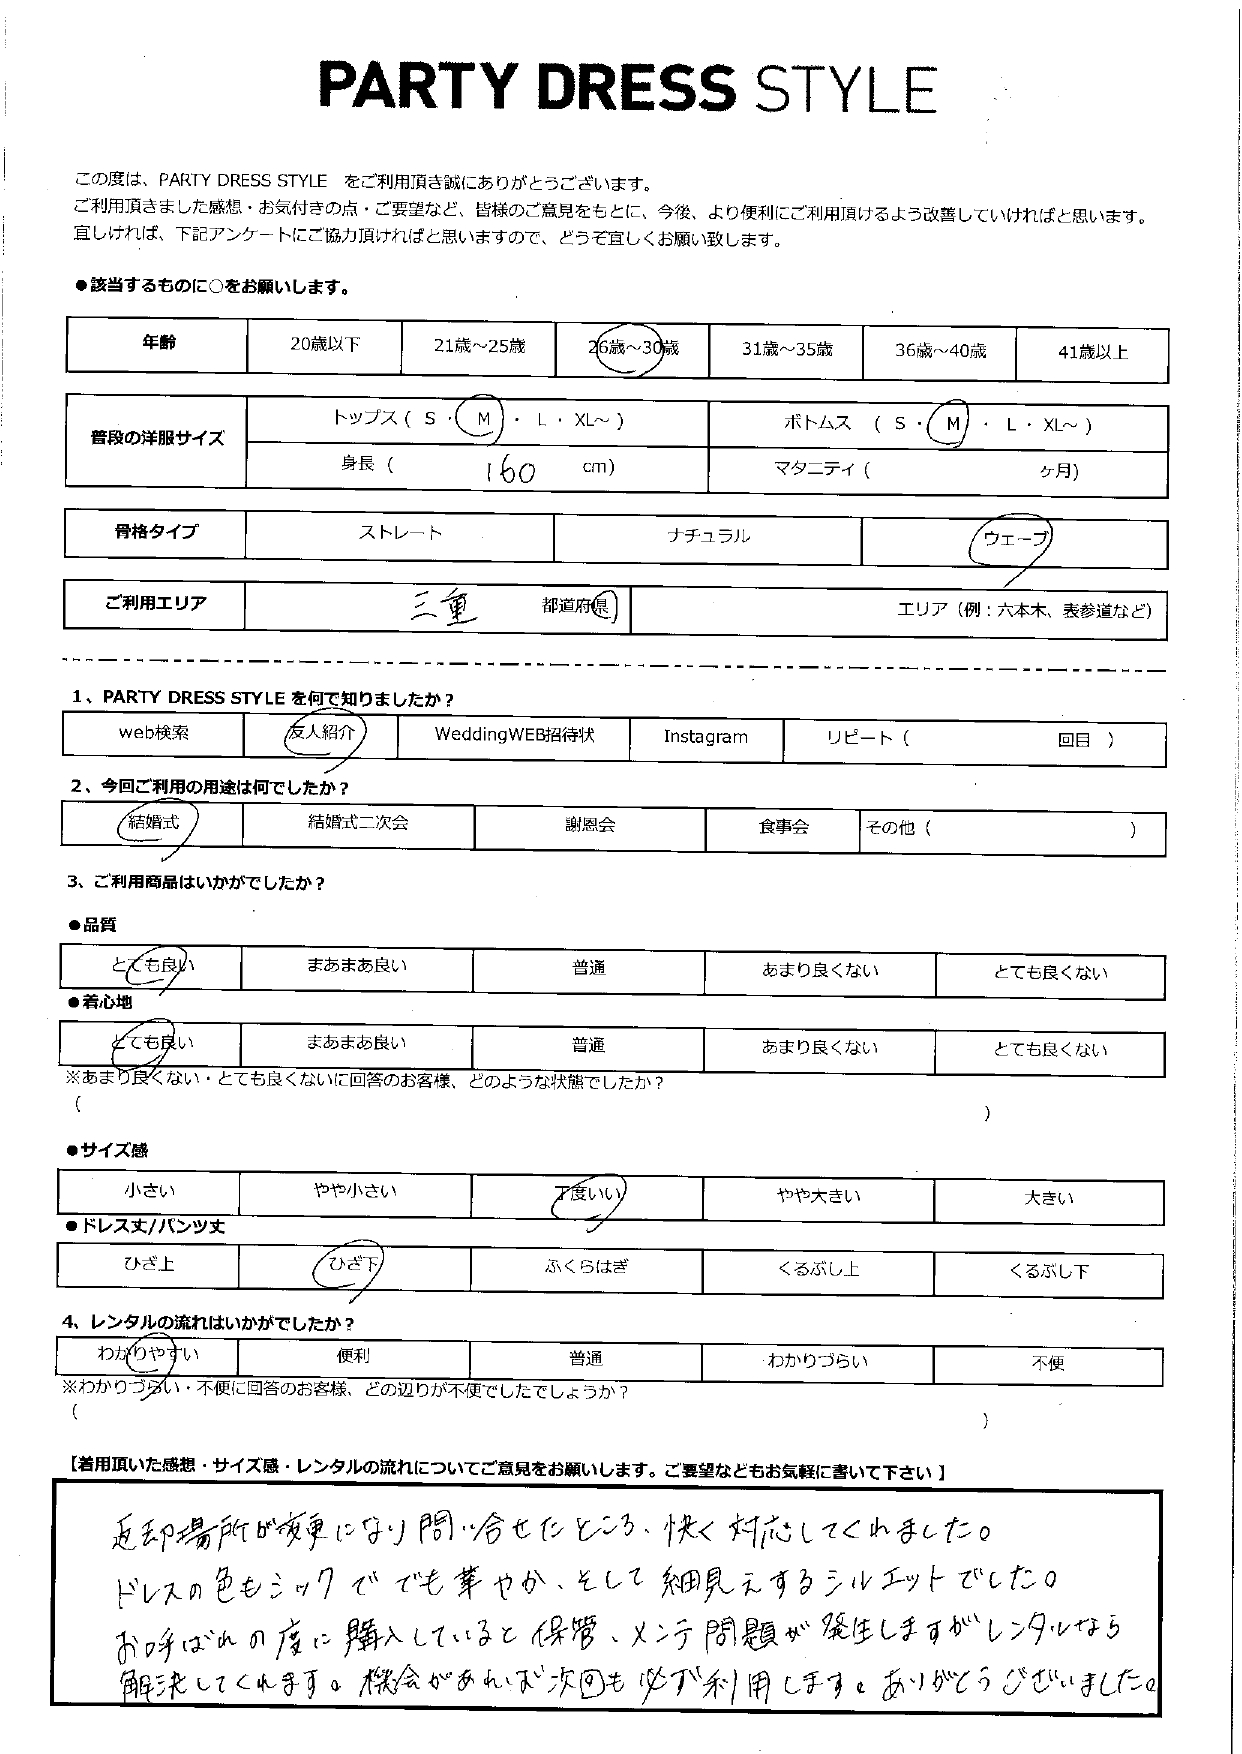 PARTY DRESS STYLE
この度は、PARTY DRESS STYLE をご利用頂き誠にありがとうございます。
ご利用頂きました感想・お気付きの点・ご要望など、皆様のご意見をもとに、今後、より便利にご利用頂けるよう改善していければと思います。
宜しければ、下記アンケートにご協力頂ければと思いますので、どうぞ宜しくお願い致します。
●該当するものに○をお願いします。
年齢 20歳以下 21歳～25歳 26歳～30歳 31歳～35歳 36歳～40歳 41歳以上
普段の洋服サイズ トップス ( S ・ M ・ L ・ XL～ ) ボトムス ( S ・ M ・ L ・ XL～ )
身長 ( 160 cm) マタニティ ( ヶ月)
骨格タイプ ストレート ナチュラル ウェーブ
ご利用エリア 三重 都道府県 エリア（例：六本木、表参道など）
1、PARTY DRESS STYLE を何で知りましたか？
web検索 友人紹介 WeddingWEB招待状 Instagram リピート ( 回目 )
2、今回ご利用の用途は何でしたか？
結婚式 結婚式二次会 謝恩会 食事会 その他 ( )
3、ご利用商品はいかがでしたか？
●品質
とても良い まあまあ良い 普通 あまり良くない とても良くない
●着心地
とても良い まあまあ良い 普通 あまり良くない とても良くない
※あまり良くない・とても良くないに回答のお客様、どのような状態でしたか？
( )
●サイズ感
小さい やや小さい 丁度いい やや大きい 大きい
●ドレス丈/パンツ丈
ひざ上 ひざ下 ふくらはぎ くるぶし上 くるぶし下
4、レンタルの流れはいかがでしたか？
わかりやすい 便利 普通 わかりづらい 不便
※わかりづらい・不便に回答のお客様、どの辺りが不便でしたでしょうか？
( )
【着用頂いた感想・サイズ感・レンタルの流れについてご意見をお願いします。ご要望などもお気軽に書いて下さい】
返却場所が変更になり問い合せたところ、快く対応してくれました。
ドレスの色もシックで でも華やか、そして細見えするシルエットでした。
お呼ばれの度に購入していると保管、メンテ問題が発生しますがレンタルなら
解決してくれます。機会があれば次回も必ず利用します。ありがとうございました。